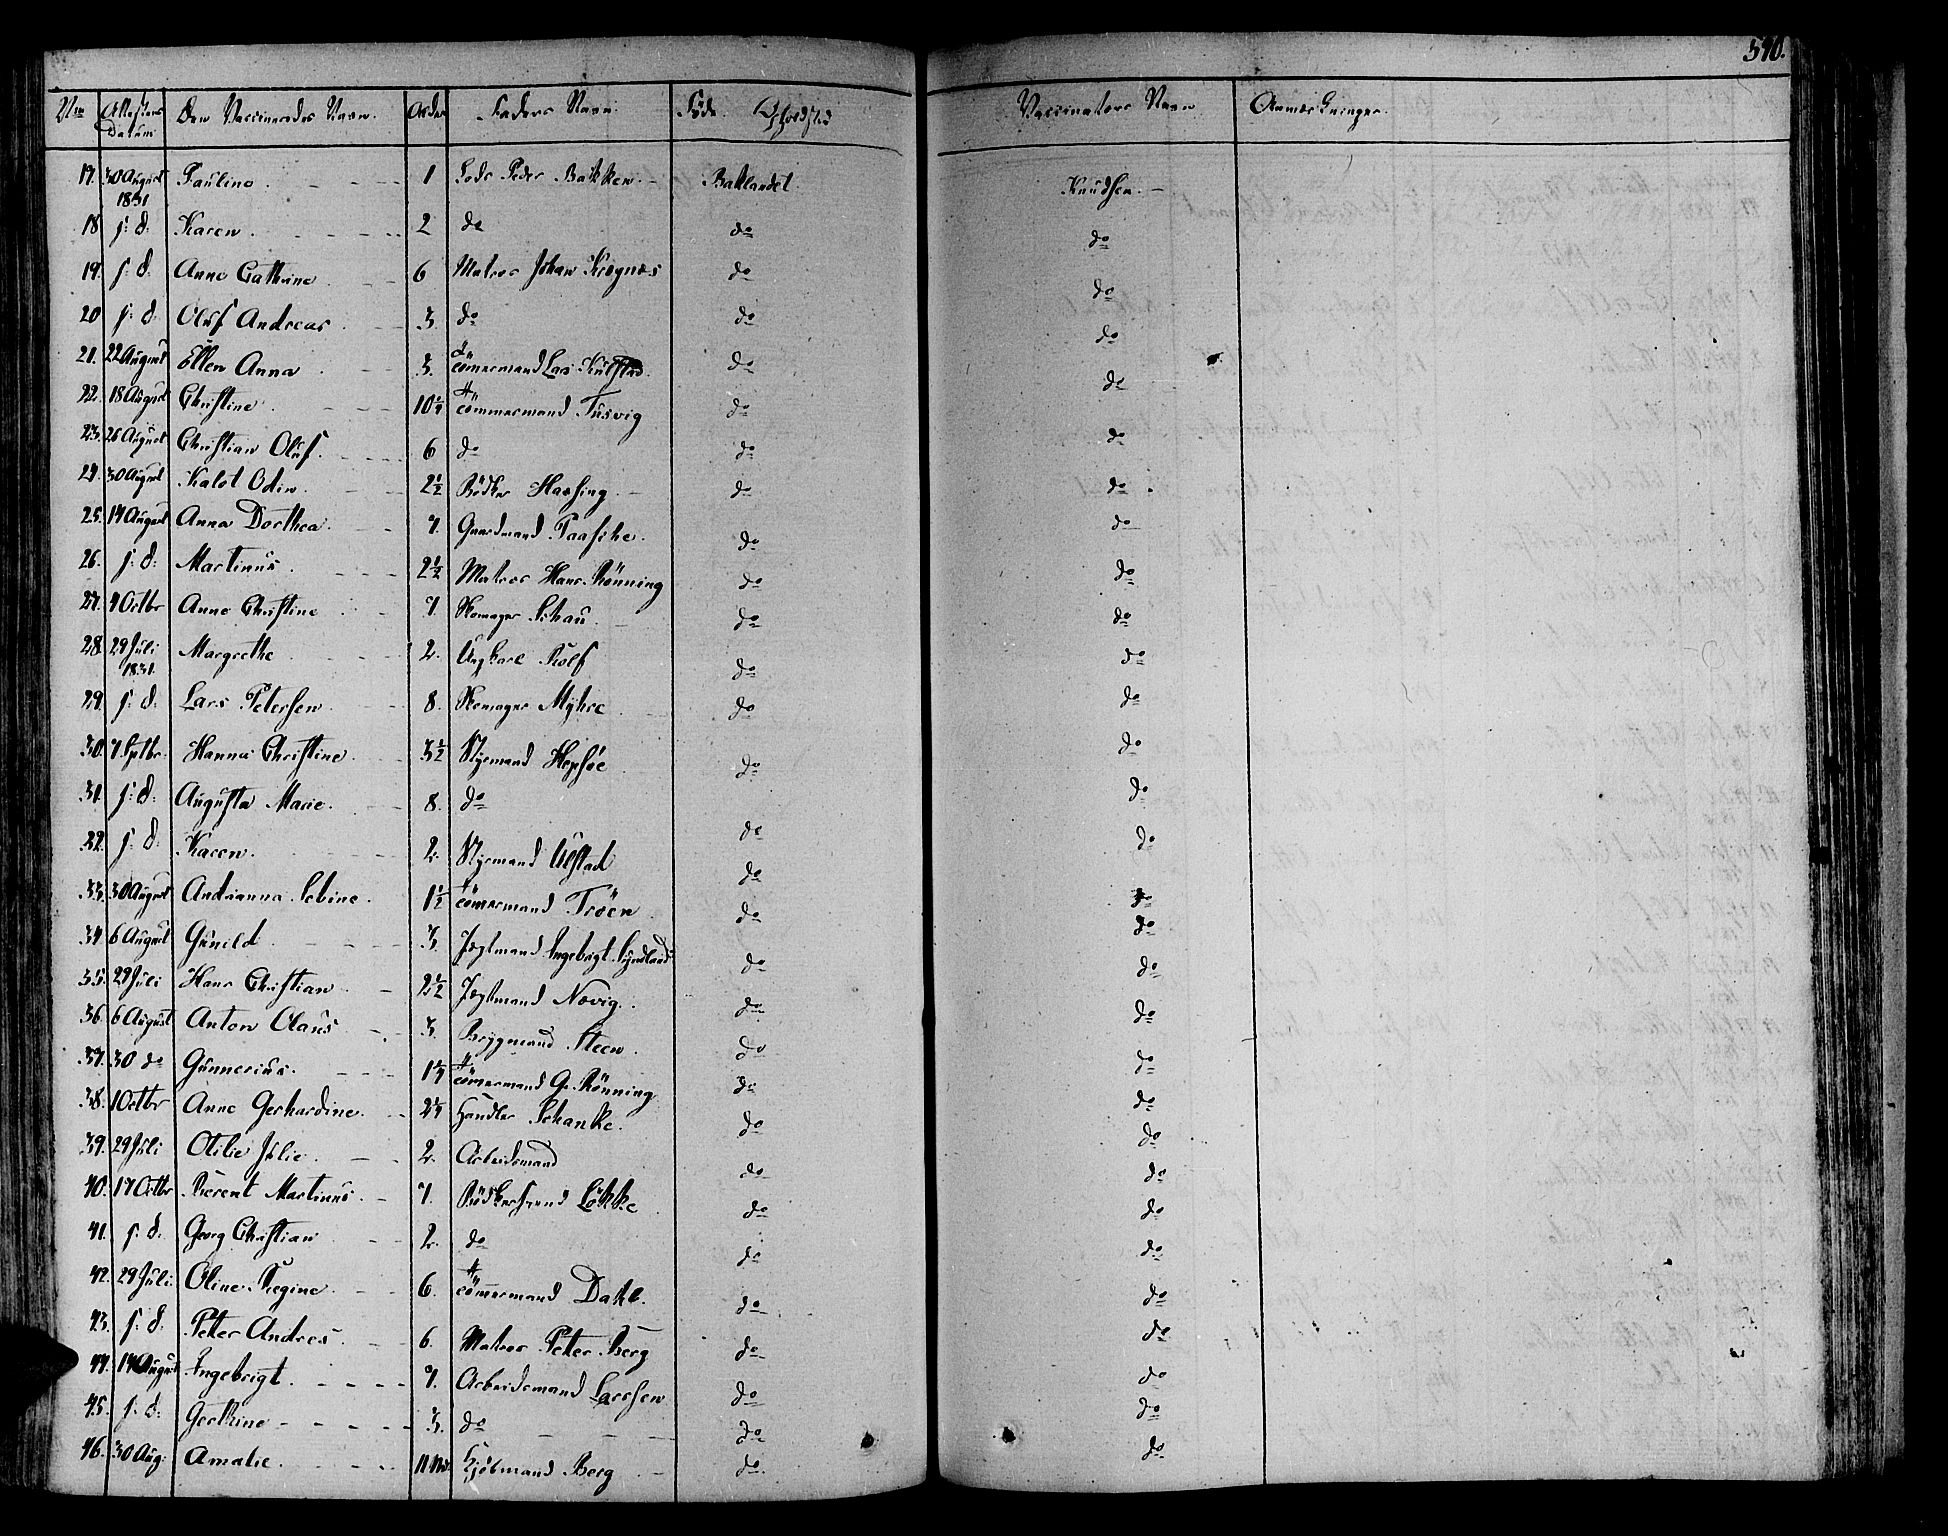 510.
No Attestens Datum Den Vaccineredes Navn. Alder Faders Navn Føde Opholdsted Vaccinators Navn Anmærkninger.
17. 30 August 1831 Pauline 1 Lods Peder Bakken Baklandet. Knudsen.
18 s: d. Karen 2 do do do
19. s: d. Anne Cathrine 6 Matros Johan Krognes do do
20 s: d. Oluf Andreas 3. do do do
21. 22 August Ellen Anna 3. Tömmermand Lars Kulstad. do do
22. 18 August Christine 10 1/4 Tömmermand Tusvig do do
23. 26 August Christian Oluf 6 do do do
24 30 August Kalot Odin 2 1/2 Bödker Hassing do do
25. 14 August Anna Dorthea 4. Gaardmand Paasche. do do
26. s: d: Martinus 2 1/2 Matros Hans Rönning do do
27. 4 Octbr Anne Christine 4. Skomager Schau do do
28. 29 Juli 1831. Margrethe 2. Ungkarl Rolf do do
29. s: d: Lars Petersen 8. Skomager Myhre do do
30. 4 Septbr. Hanna Christine 3 1/2 Styrmand Hepsöe do do
31. s: d. Augusta Marie. 8. do do do
32. s: d. Karen. 2. Styrmand Ulstad do do
33. 30 August Andrianna Sebine. 1 1/2 Tömmermand Tröen do do
34 6 August Gunild 3 Jægtmand Ingebrigt do do
35. 29 Juli Hans Christian 2 1/2 Jægtmand Nævig. do do
36. 6 August Anton Olaus 3 Bryggmand Steen. do do
37. 30 do Gunnerius. 1 1/4 Tömmermand G. Rönning do do
38. 1 Octbr Anne Gerhardine. 2 1/4 Handler Schanke. do do
39. 29 Juli Otilie Julie. 2. Arbeidsmand do do
40. 17 Octbr Berent Martinus 4. Bödkersvend Lökke do do
41. s: d. Georg Christian 2. do do do
42. 29 Juli. Oline Regine. 6. Tömmermand Dahl. do do
43. s: d. Peter Andres 6. Matros Peter Berg do do
44. 14 August Ingebrigt. 4. Arbeidsmand Larssen do do
45. s: d: Gertine 3. do do do
46. 30 Aug: Amalie. 11 Md. Kjöbmand Berg do. do